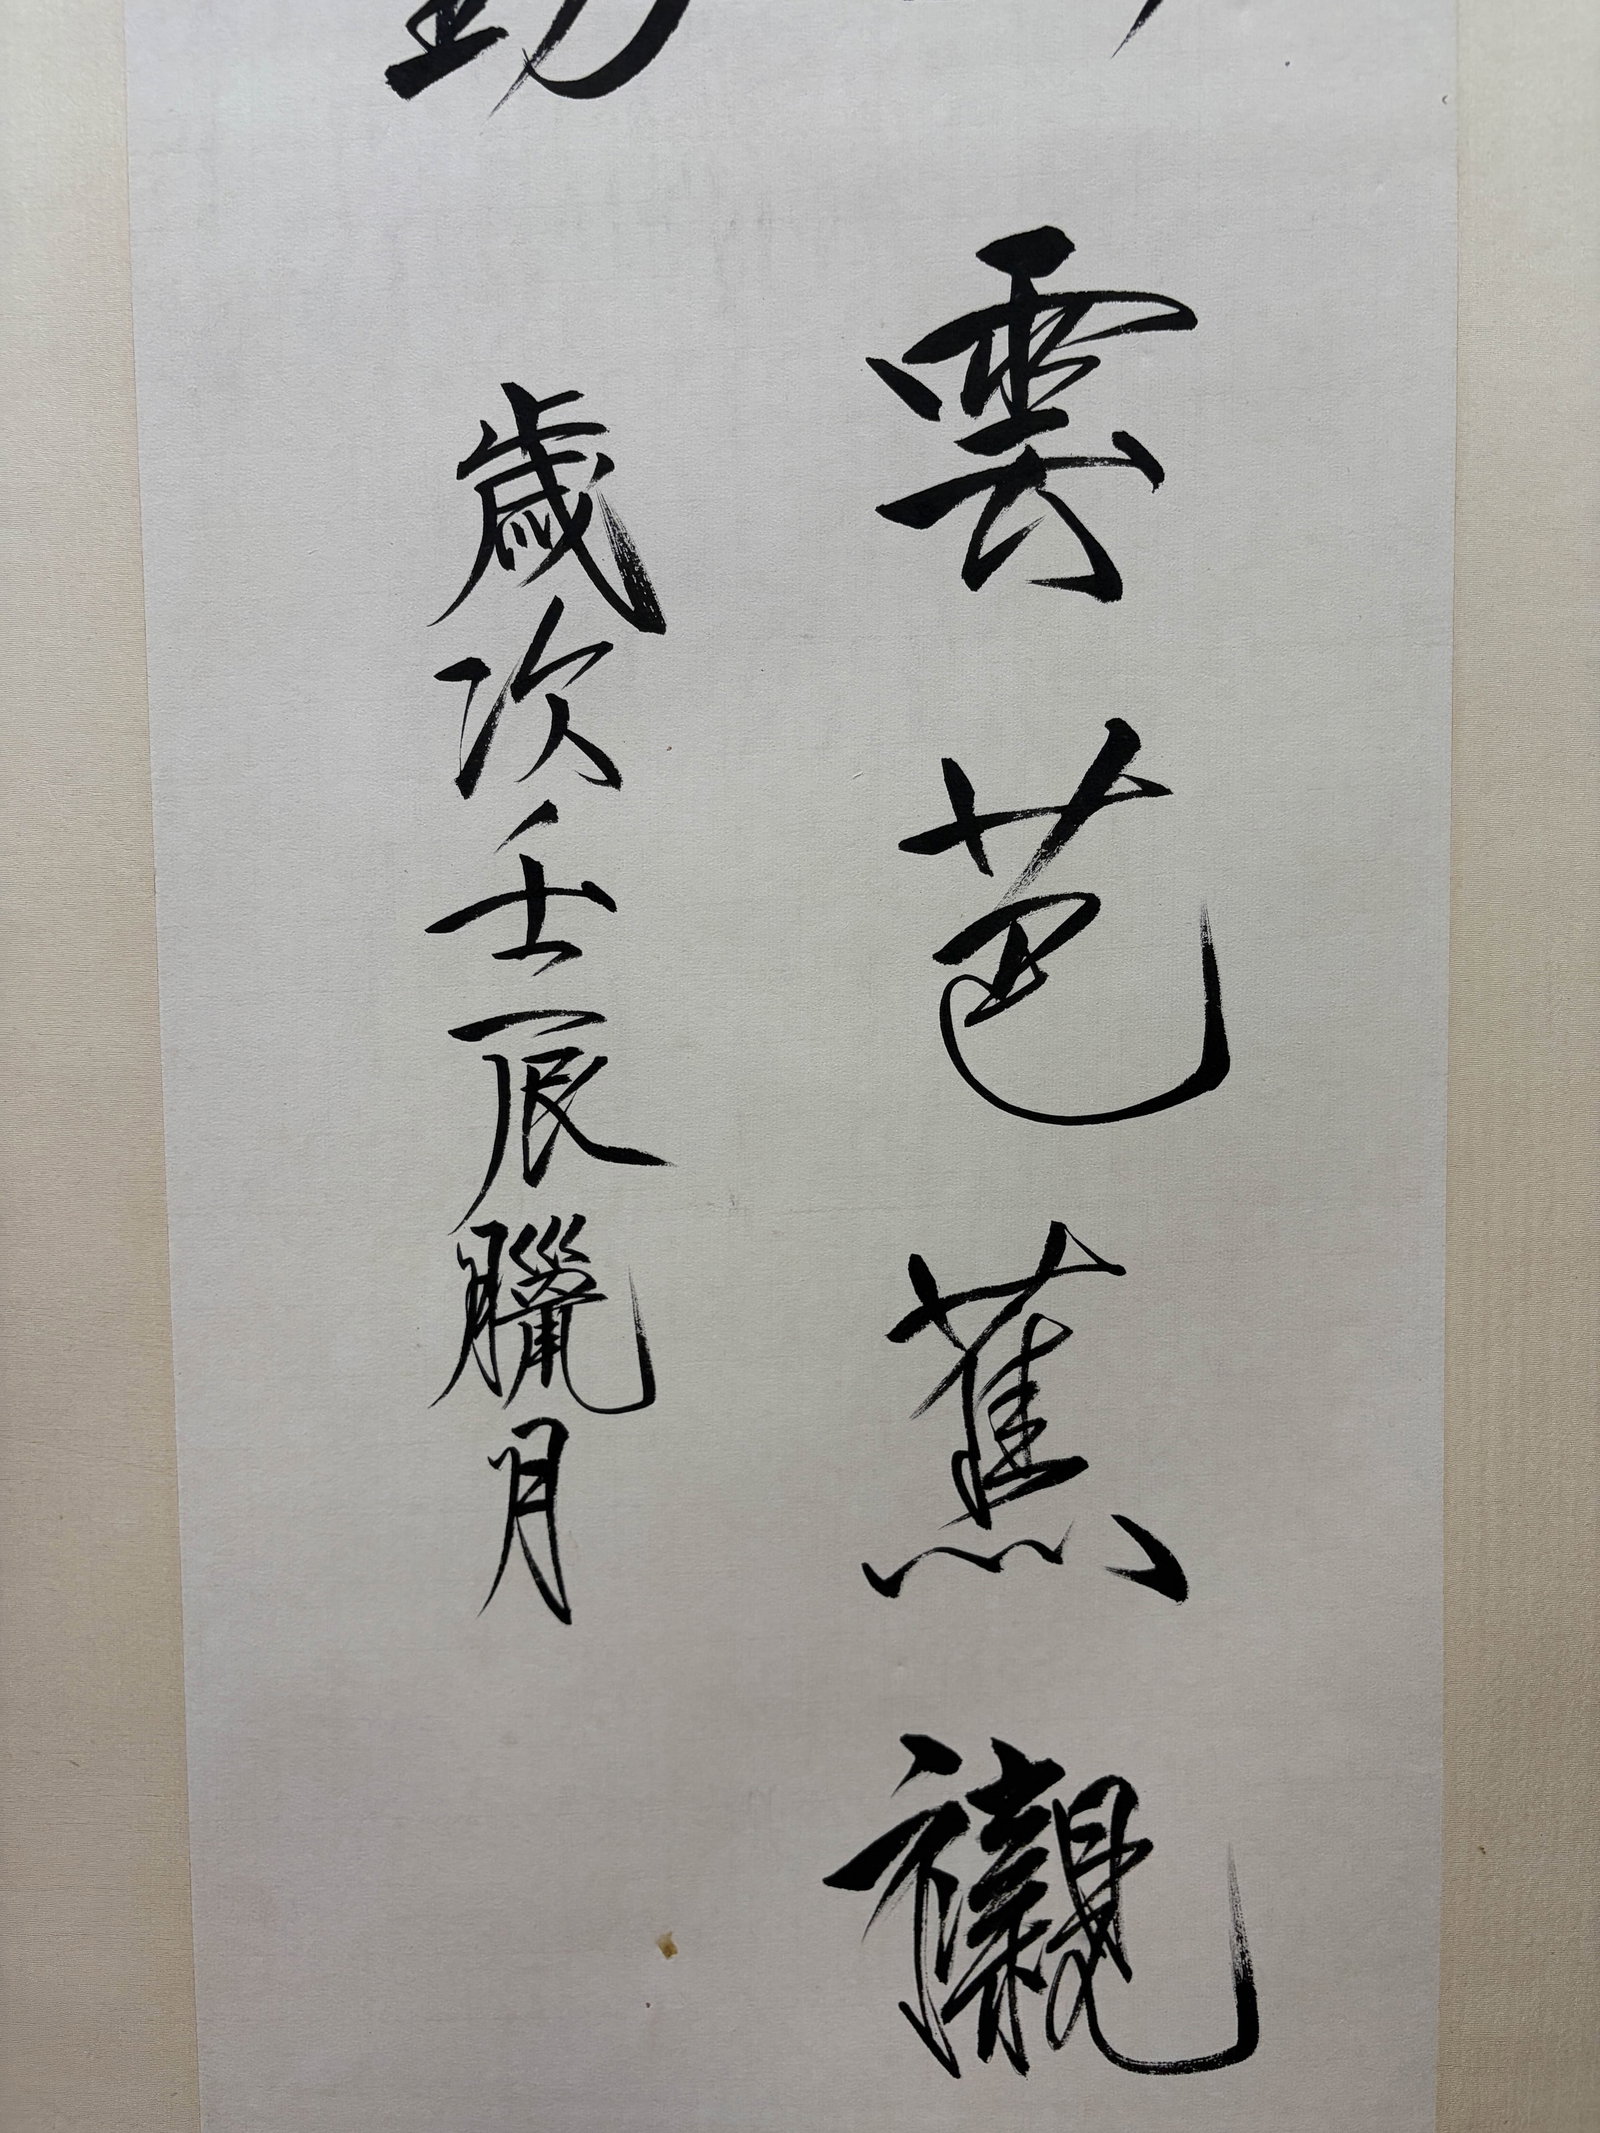 雲芭蕉襯
歲次壬辰臘月